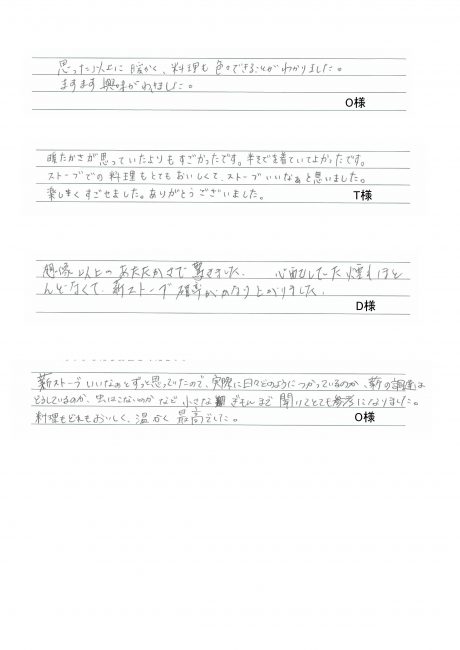 思った以上に暖かく、料理も色々できることがわかりました。
ますます興味がわきました。
O様
暖たかさが思っていたよりもすごかったです。半そでを着ていてよかったです。
ストーブでの料理もとてもおいしくて、ストーブいいなぁと思いました。
楽しくすごせました。ありがとうございました。
T様
想像以上のあたたかさで驚きました。心配していた煙もほと
んどなくて、薪ストーブ確率がかなり上がりました。
D様
薪ストーブいいなぁとずっと思っていたので、実際に日々どのようにつかっているのか、薪の調達は
どうしているのか、虫はこないのかなど小さなぎもんまで聞けてとても参考になりました。
料理もどれもおいしく、温かく最高でした。
O様